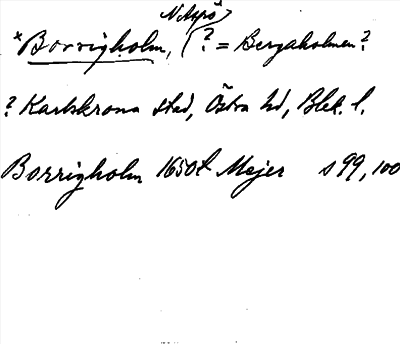 N. Aspö
*Borrigholm, (? = Bergaholmen?
? Karlskrona stad, Östra hd, Blek. l.
Borrigholm 1650t Mejer s 99, 100